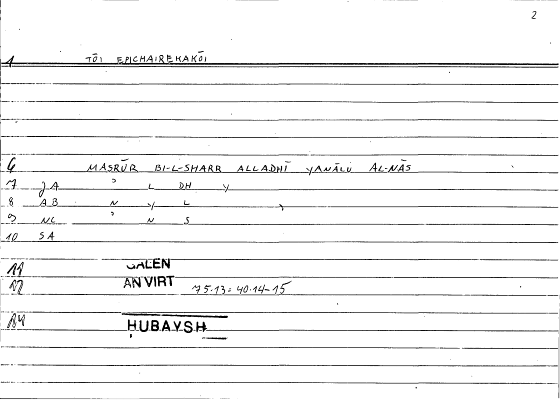 2
1 TŌI EPICHAIREKAKŌI
6 MASRŪR BI-L-SHARR ALLADHĪ YANĀLU AL-NĀS
7 JA ʾ L DH Y
8 AB N Y L
9 NL ʾ N S
10 SA
11 GALEN
12 AN VIRT 75.13 = 40.14-15
14 HUBAYSH